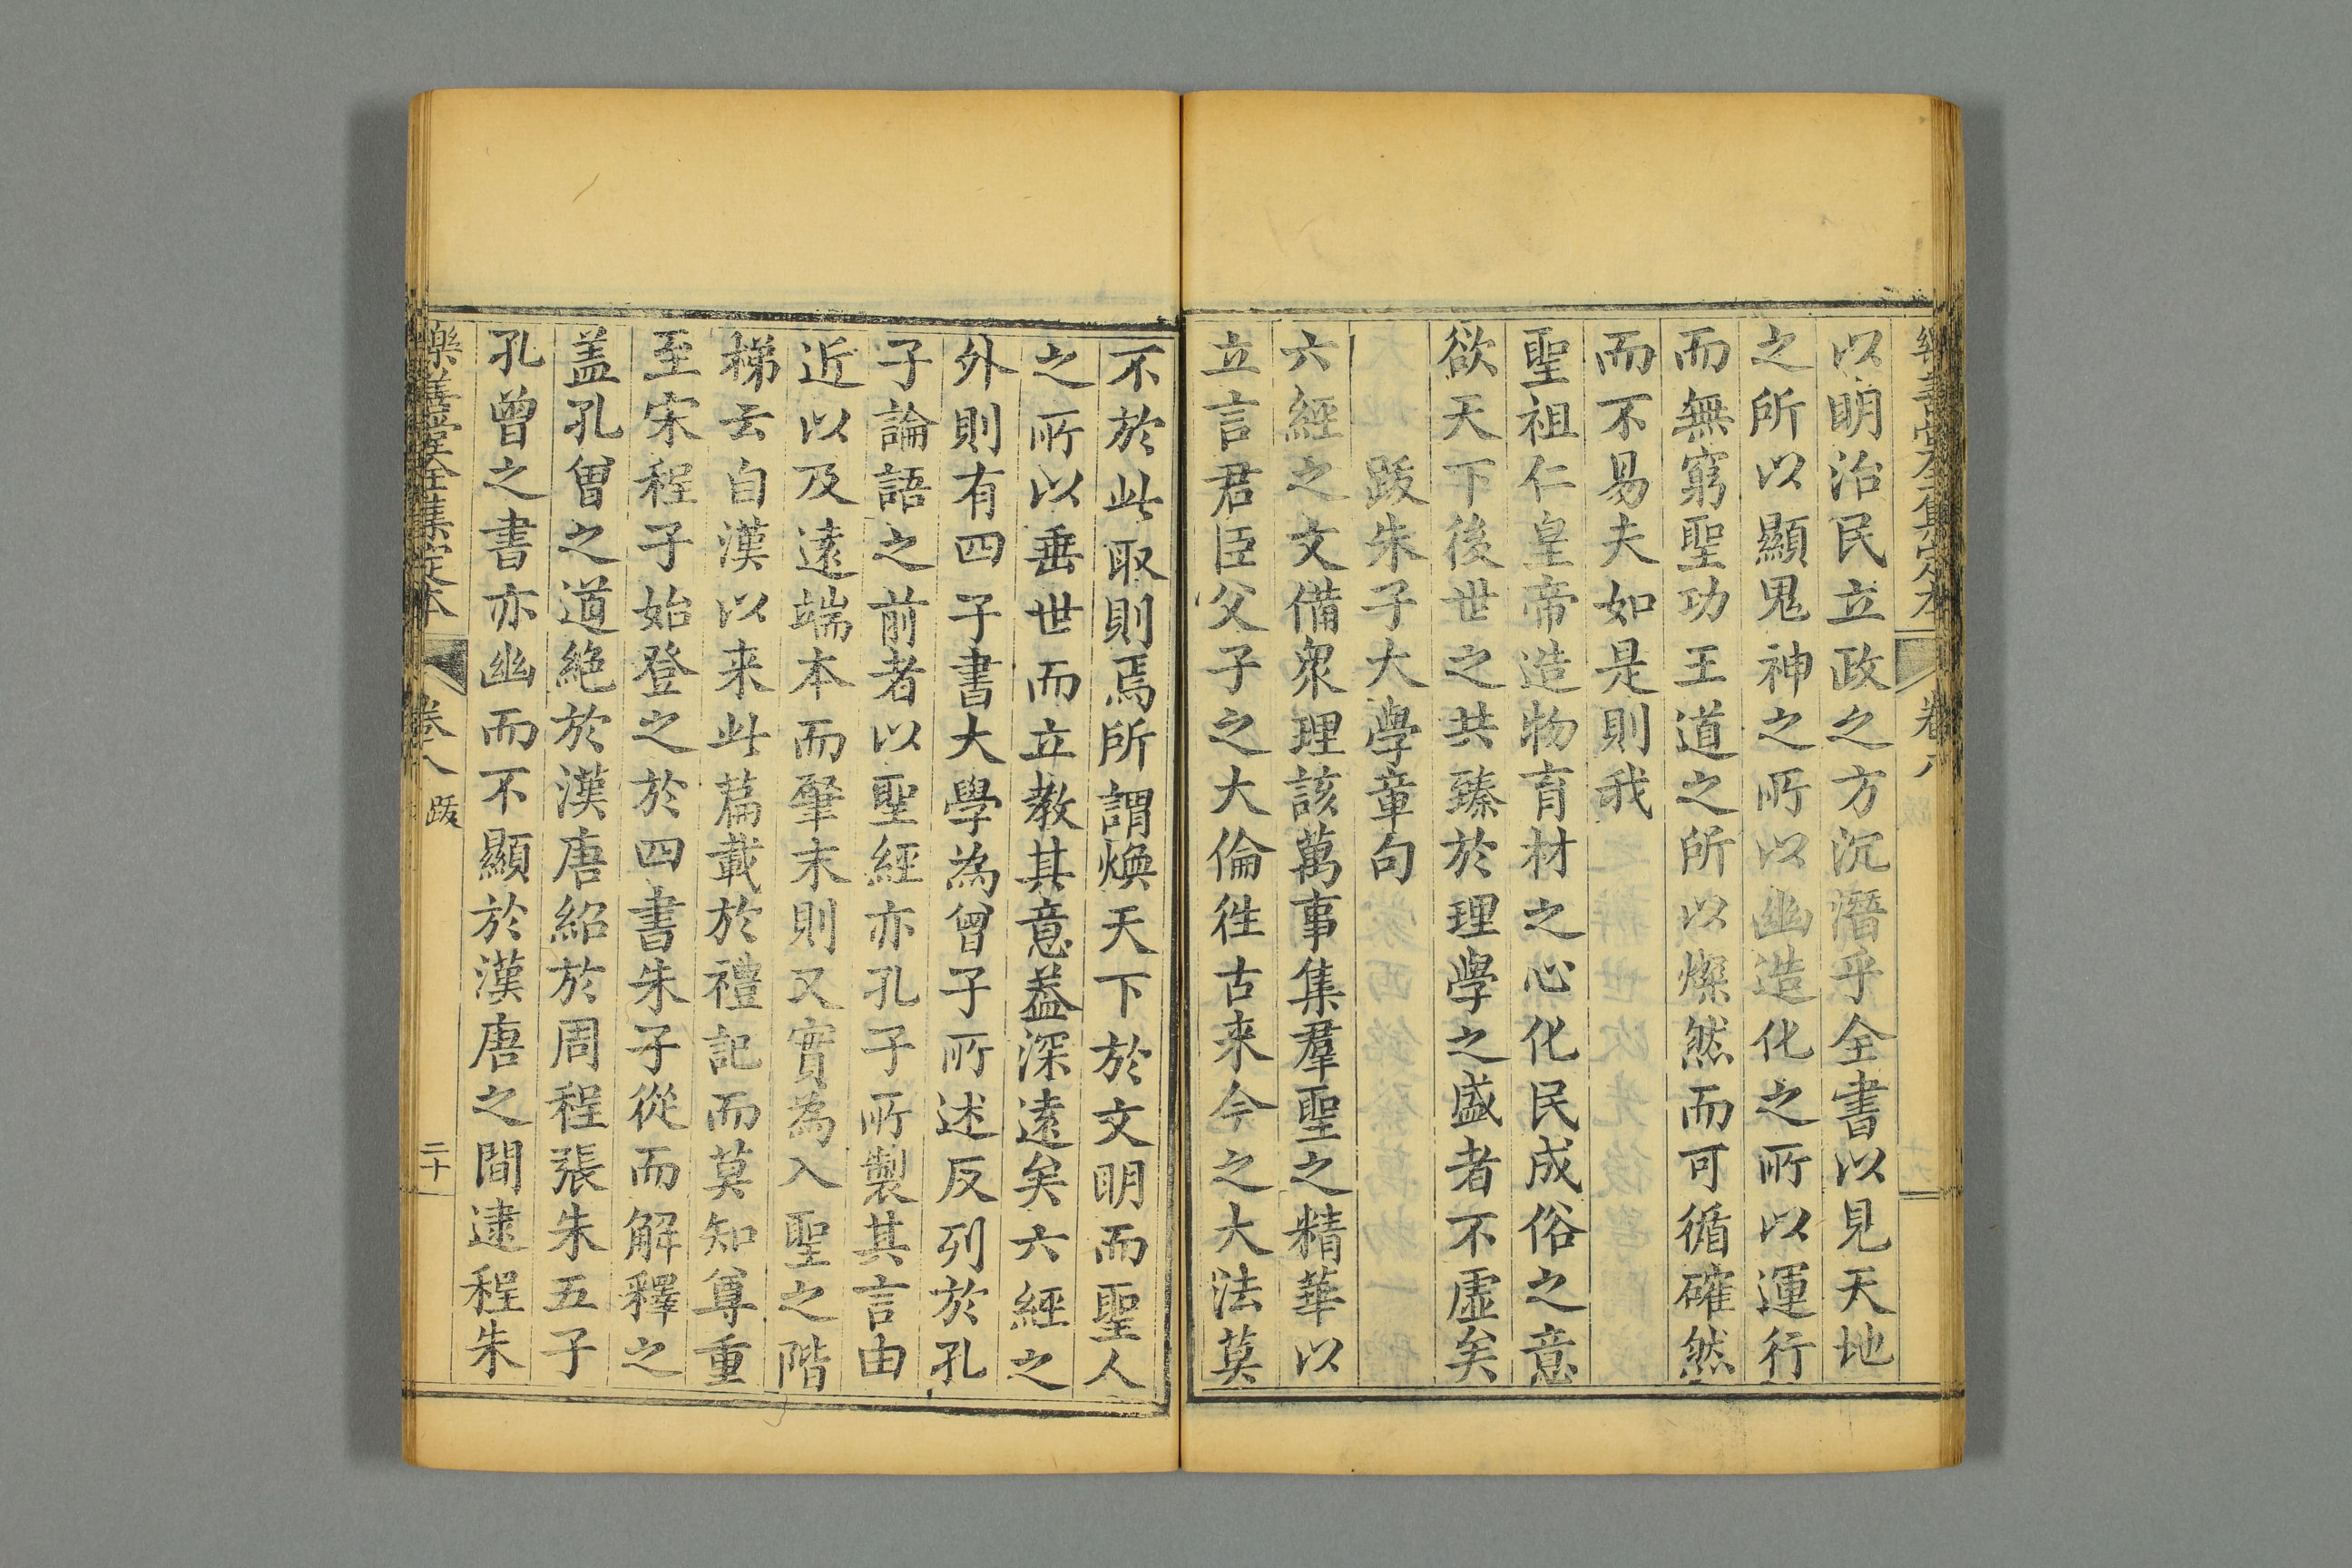 樂善堂全集定本 卷八
以明治民立政之方沉潛乎全書以見天地
之所以顯鬼神之所以幽造化之所以運行
而無窮聖功王道之所以燦然而可循確然
而不易夫如是則我
聖祖仁皇帝造物育材之心化民成俗之意
欲天下後世之共臻於理學之盛者不虛矣
跋朱子大學章句
六經之文備衆理該萬事集羣聖之精華以
立言君臣父子之大倫徃古来今之大法莫
不於此取則焉所謂煥天下於文明而聖人
之所以垂世而立教其意葢深遠矣六經之
外則有四子書大學為曾子所述反列於孔
子論語之前者以聖經亦孔子所製其言由
近以及遠端本而肇末則又實為入聖之階
梯云自漢以来此篇載於禮記而莫知尊重
至宋程子始登之於四書朱子從而解釋之
盖孔曾之道絶於漢唐紹於周程張朱五子
孔曾之書亦幽而不顯於漢唐之間逮程朱
樂善堂全集定本 卷八 跋 二十